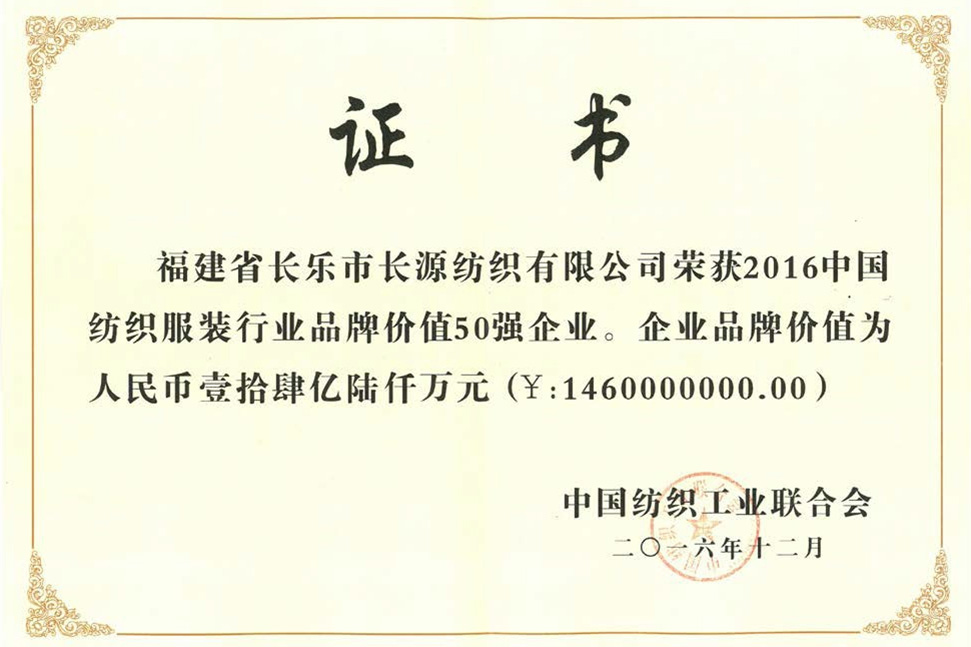 证 书
福建省长乐市长源纺织有限公司荣获2016中国
纺织服装行业品牌价值50强企业。企业品牌价值为
人民币壹拾肆亿陆仟万元（¥:1460000000.00）
中国纺织工业联合会
二〇一六年十二月